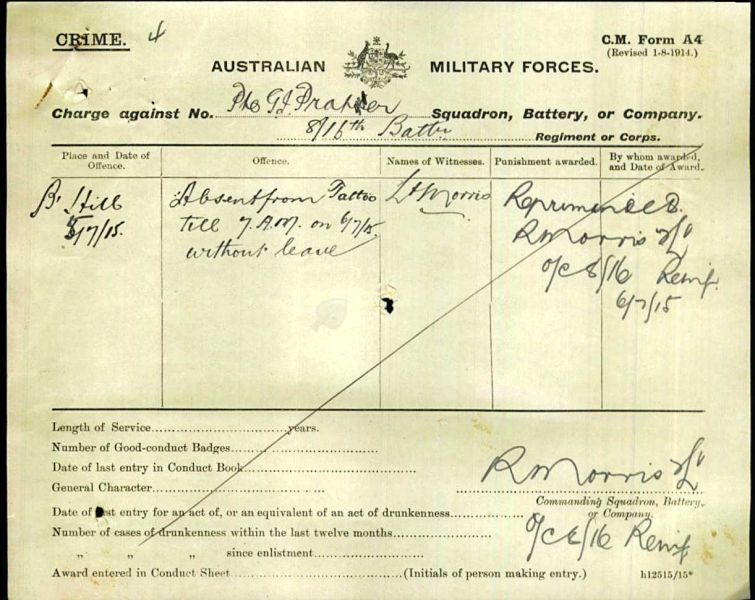 CRIME. 4
C.M. Form A4
(Revised 1-8-1914.)
AUSTRALIAN MILITARY FORCES.
Charge against No. Pte G.J. Squadron, Battery, or Company.
8/16th Battn Regiment or Corps.
Place and Date of Offence. Offence. Names of Witnesses. Punishment awarded. By whom awarded, and Date of Award.
B. Hill Absent from Tattoo Lt Morris Reprimanded.
6/7/15. till 7 A.M. on 6/7/15. R Morris Lt
without leave o/c 8/16 Reinf.
6/7/15
Length of Service years.
Number of Good-conduct Badges
Date of last entry in Conduct Book
General Character
R Morris Lt
Commanding Squadron, Battery, or Company.
Date of last entry for an act of, or an equivalent of an act of drunkenness
o/c 8/16 Reinf
Number of cases of drunkenness within the last twelve months
„ „ „ since enlistment
Award entered in Conduct Sheet (Initials of person making entry.) h12515/15*